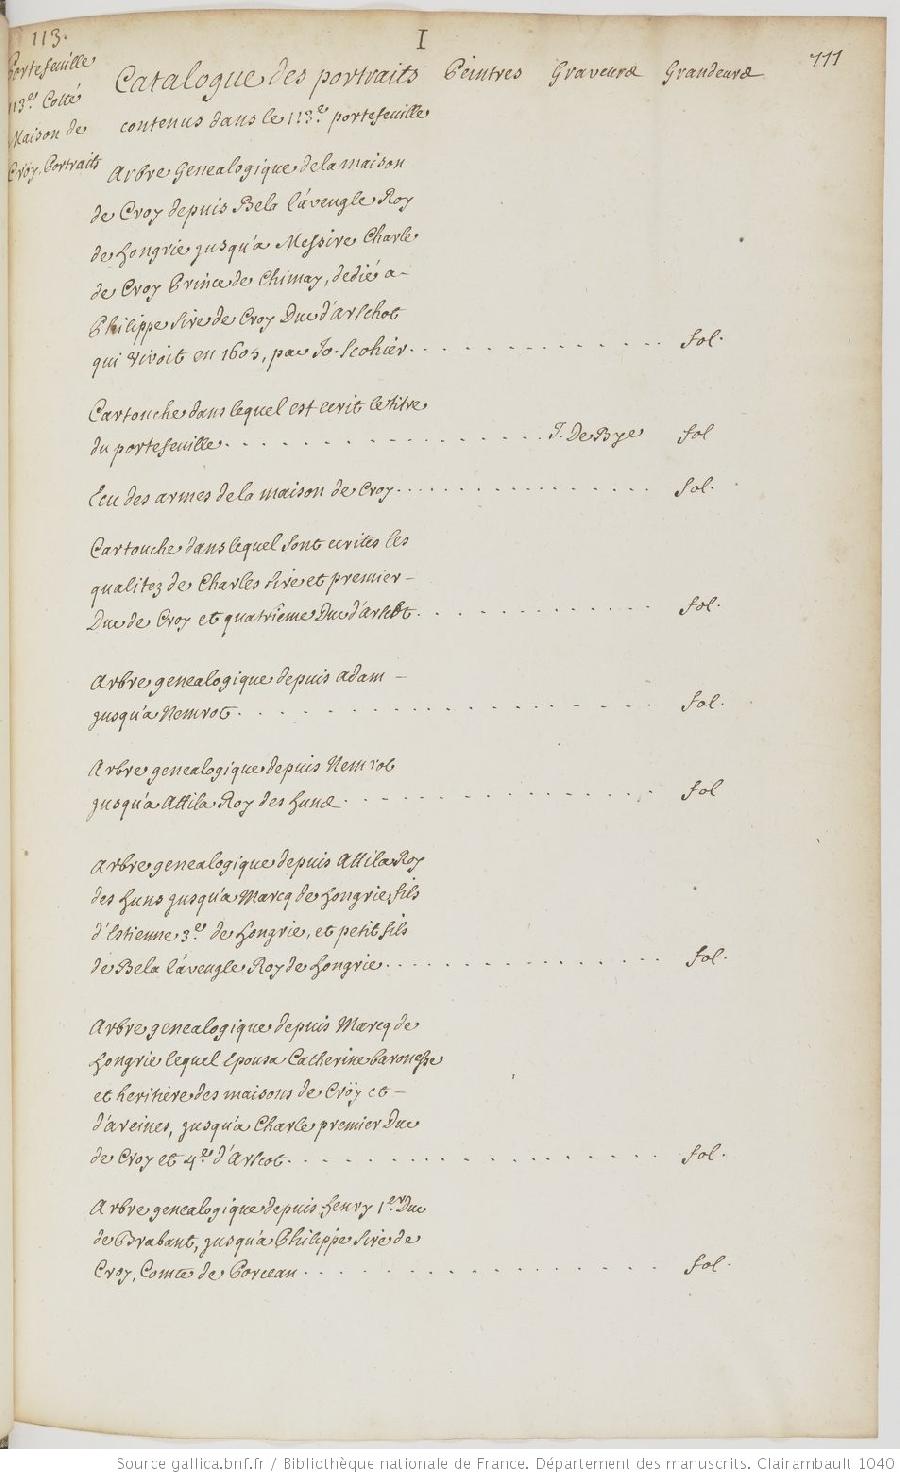 113.
I
111
Portefeuille
113e. Cotté
Maison de
Cröy. Portraits
Catalogue des portraits Peintres Graveurs Grandeurs
contenus dans le 113.e portefeuille
Arbre Genealogique de la maison
de Croy depuis Bela l'aveugle Roy
de hongrie jusqu'a Messire Charle
de Croy Prince de Chimay, dedié a-
Philippe Sire de Croy Duc d'Arschot
qui vivoit en 1605, par Jo. Scohier. . . . . . . . . . . . . fol.
Cartouche dans lequel est ecrit le titre
du portefeuille . . . . . . . . . . . . . . . . J. De Bye fol
Ecu des armes de la maison de Croy . . . . . . . . . . . . . fol.
Cartouche dans lequel sont ecrites les
qualitez de Charles Sire et premier-
Duc de Croy et quatrieme Duc d'Arscot . . . . . . . . . . . fol.
Arbre genealogique depuis Adam -
jusqu'a Nemrot . . . . . . . . . . . . . . . . . fol.
Arbre genealogique depuis Nemrot
jusqu'a Attila Roy des huns . . . . . . . . . . . . . fol
Arbre genealogique depuis Attila Roy
des huns jusqu'a Marcq de hongrie, fils
d'Estienne 3.e de hongrie, et petit fils
de Bela l'aveugle Roy de hongrie . . . . . . . . . . . . . fol.
Arbre genealogique depuis Marcq de
hongrie lequel epousa Catherine baronesse
et heritiere des maisons de Cröy et -
d'areines, jusqu'a Charle premier Duc
de Croy et 4.e d'Arscot . . . . . . . . . . . . . . . fol.
Arbre genealogique depuis henry 1.er Duc
de Brabant, jusqu'a Philippe Sire de
Croy, Comte de Porcean . . . . . . . . . . . . . . . fol.
Source gallica.bnf.fr / Bibliothèque nationale de France. Département des manuscrits. Clairambault 1040